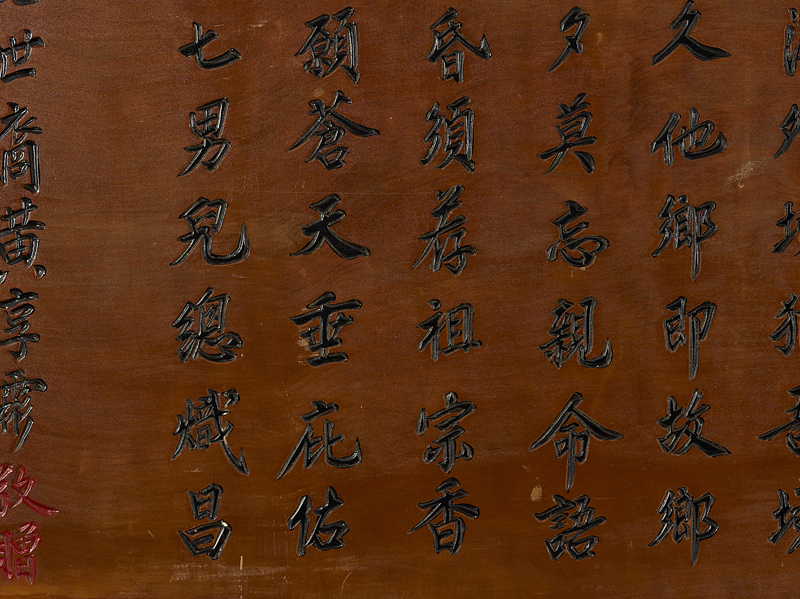 外境猶吾境
久他鄉即故鄉
夕莫忘親命語
昏須荐祖宗香
願蒼天垂庇佑
七男兒總熾昌
世裔黃享敬贈